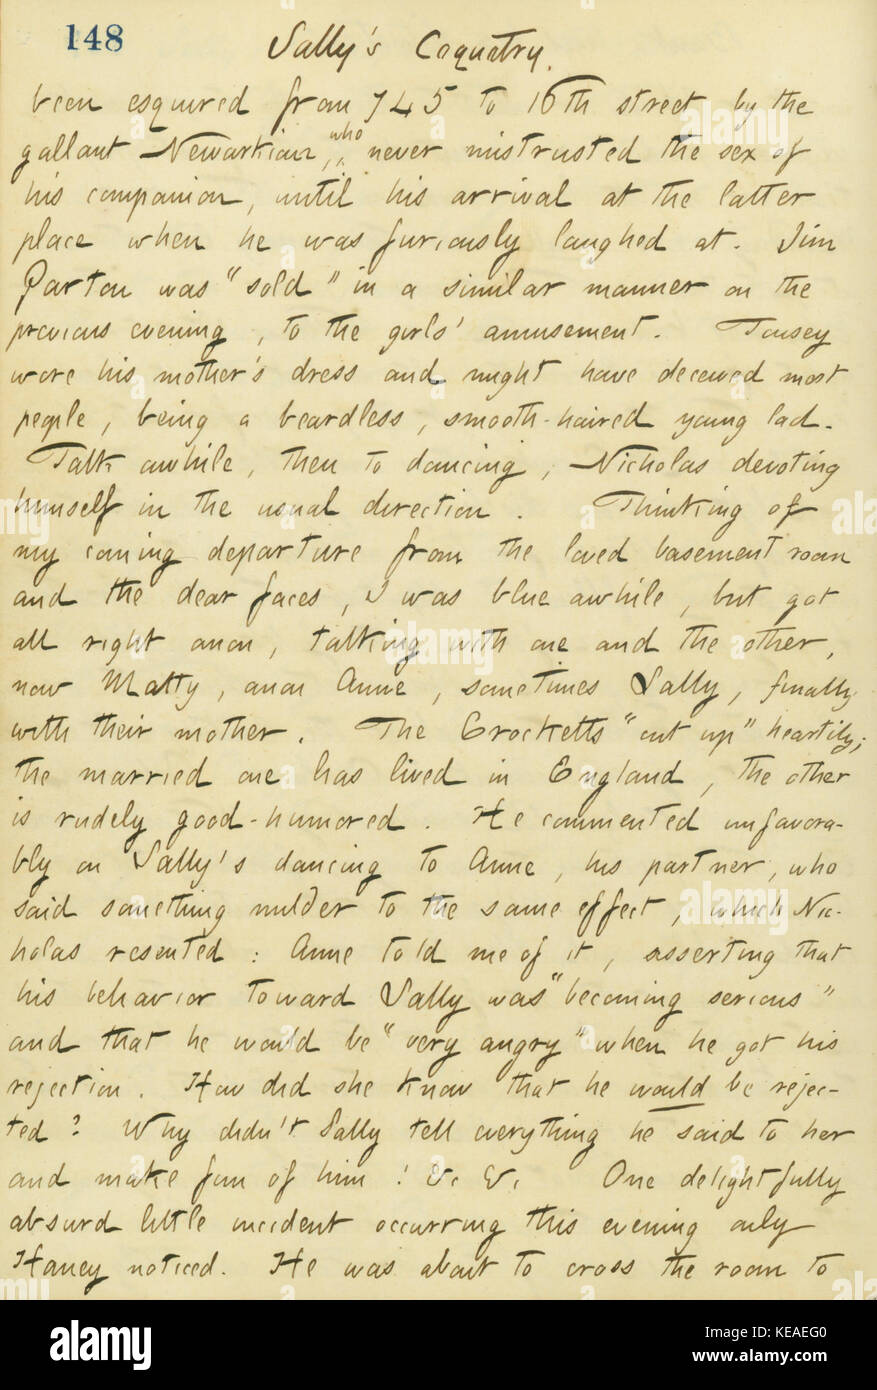 148
Sally's Coquetry.
been esquired from 745 to 16th street by the
gallant Newarkian, who never mistrusted the sex of
his companion, until his arrival at the latter
place when he was furiously laughed at. Jim
Parton was "sold" in a similar manner on the
previous evening, to the girls' amusement. Tousey
wore his mother's dress and might have deceived most
people, being a beardless, smooth-haired young lad.
Talk awhile, then to dancing, Nicholas devoting
himself in the usual direction. Thinking of
my coming departure from the loved basement room
and the dear faces, I was blue awhile, but got
all right anon, talking with one and the other,
now Matty, anon Anne, sometimes Sally, finally
with their mother. The Crocketts "cut up" heartily;
the married one has lived in England, the other
is rudely good-humored. He commented unfavora-
bly on Sally's dancing to Anne, his partner, who
said something milder to the same effect, which Nic-
holas resented: Anne told me of it, asserting that
his behavior toward Sally was "becoming serious"
and that he would be "very angry" when he got his
rejection. How did she know that he would be rejec-
ted? Why didn't Sally tell everything he said to her
and make fun of him! &c &c. One delightfully
absurd little incident occurring this evening only
Haney noticed. He was about to cross the room to
alamy
Image ID: KEAEG0
www.alamy.com